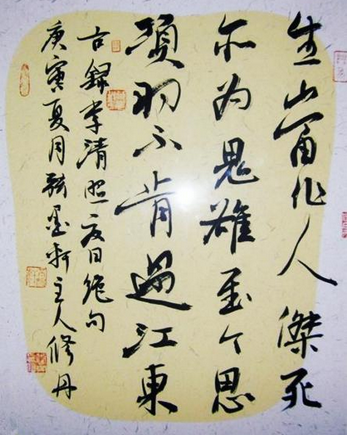 生當作人傑死
亦為鬼雄至今思
項羽不肯過江東
古錄李清照夏日絕句
庚寅夏月翰墨軒主人修丹